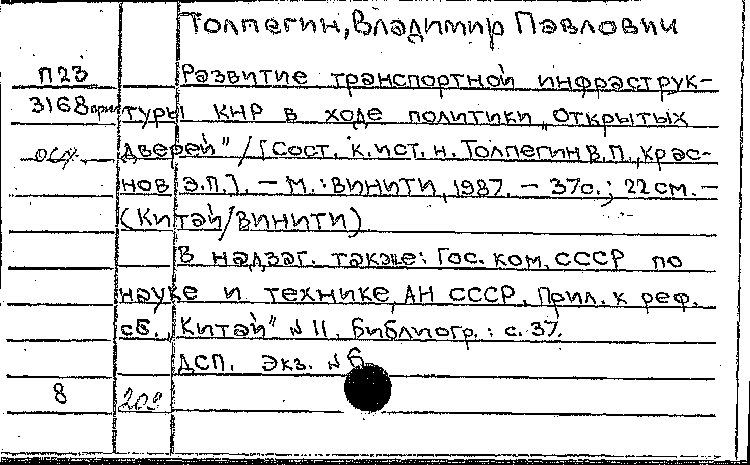 Толпегин, Владимир Павлович
П23 Развитие транспортной инфраструк-
3168 прил туры КНР в ходе политики „открытых
дверей" / [Сост. к.ист.н. Толпегин В.П., Крас-
нов Э.П.]. – М.: ВИНИТИ, 1987. – 37с.; 22 см. –
(Китай/ВИНИТИ)
В надзаг. также: Гос. ком. СССР по
науке и технике, АН СССР. Прил. к реф.
сб. „Китай" № 11. Библиогр.: с. 37.
ДСП. Экз. № 6
8 209